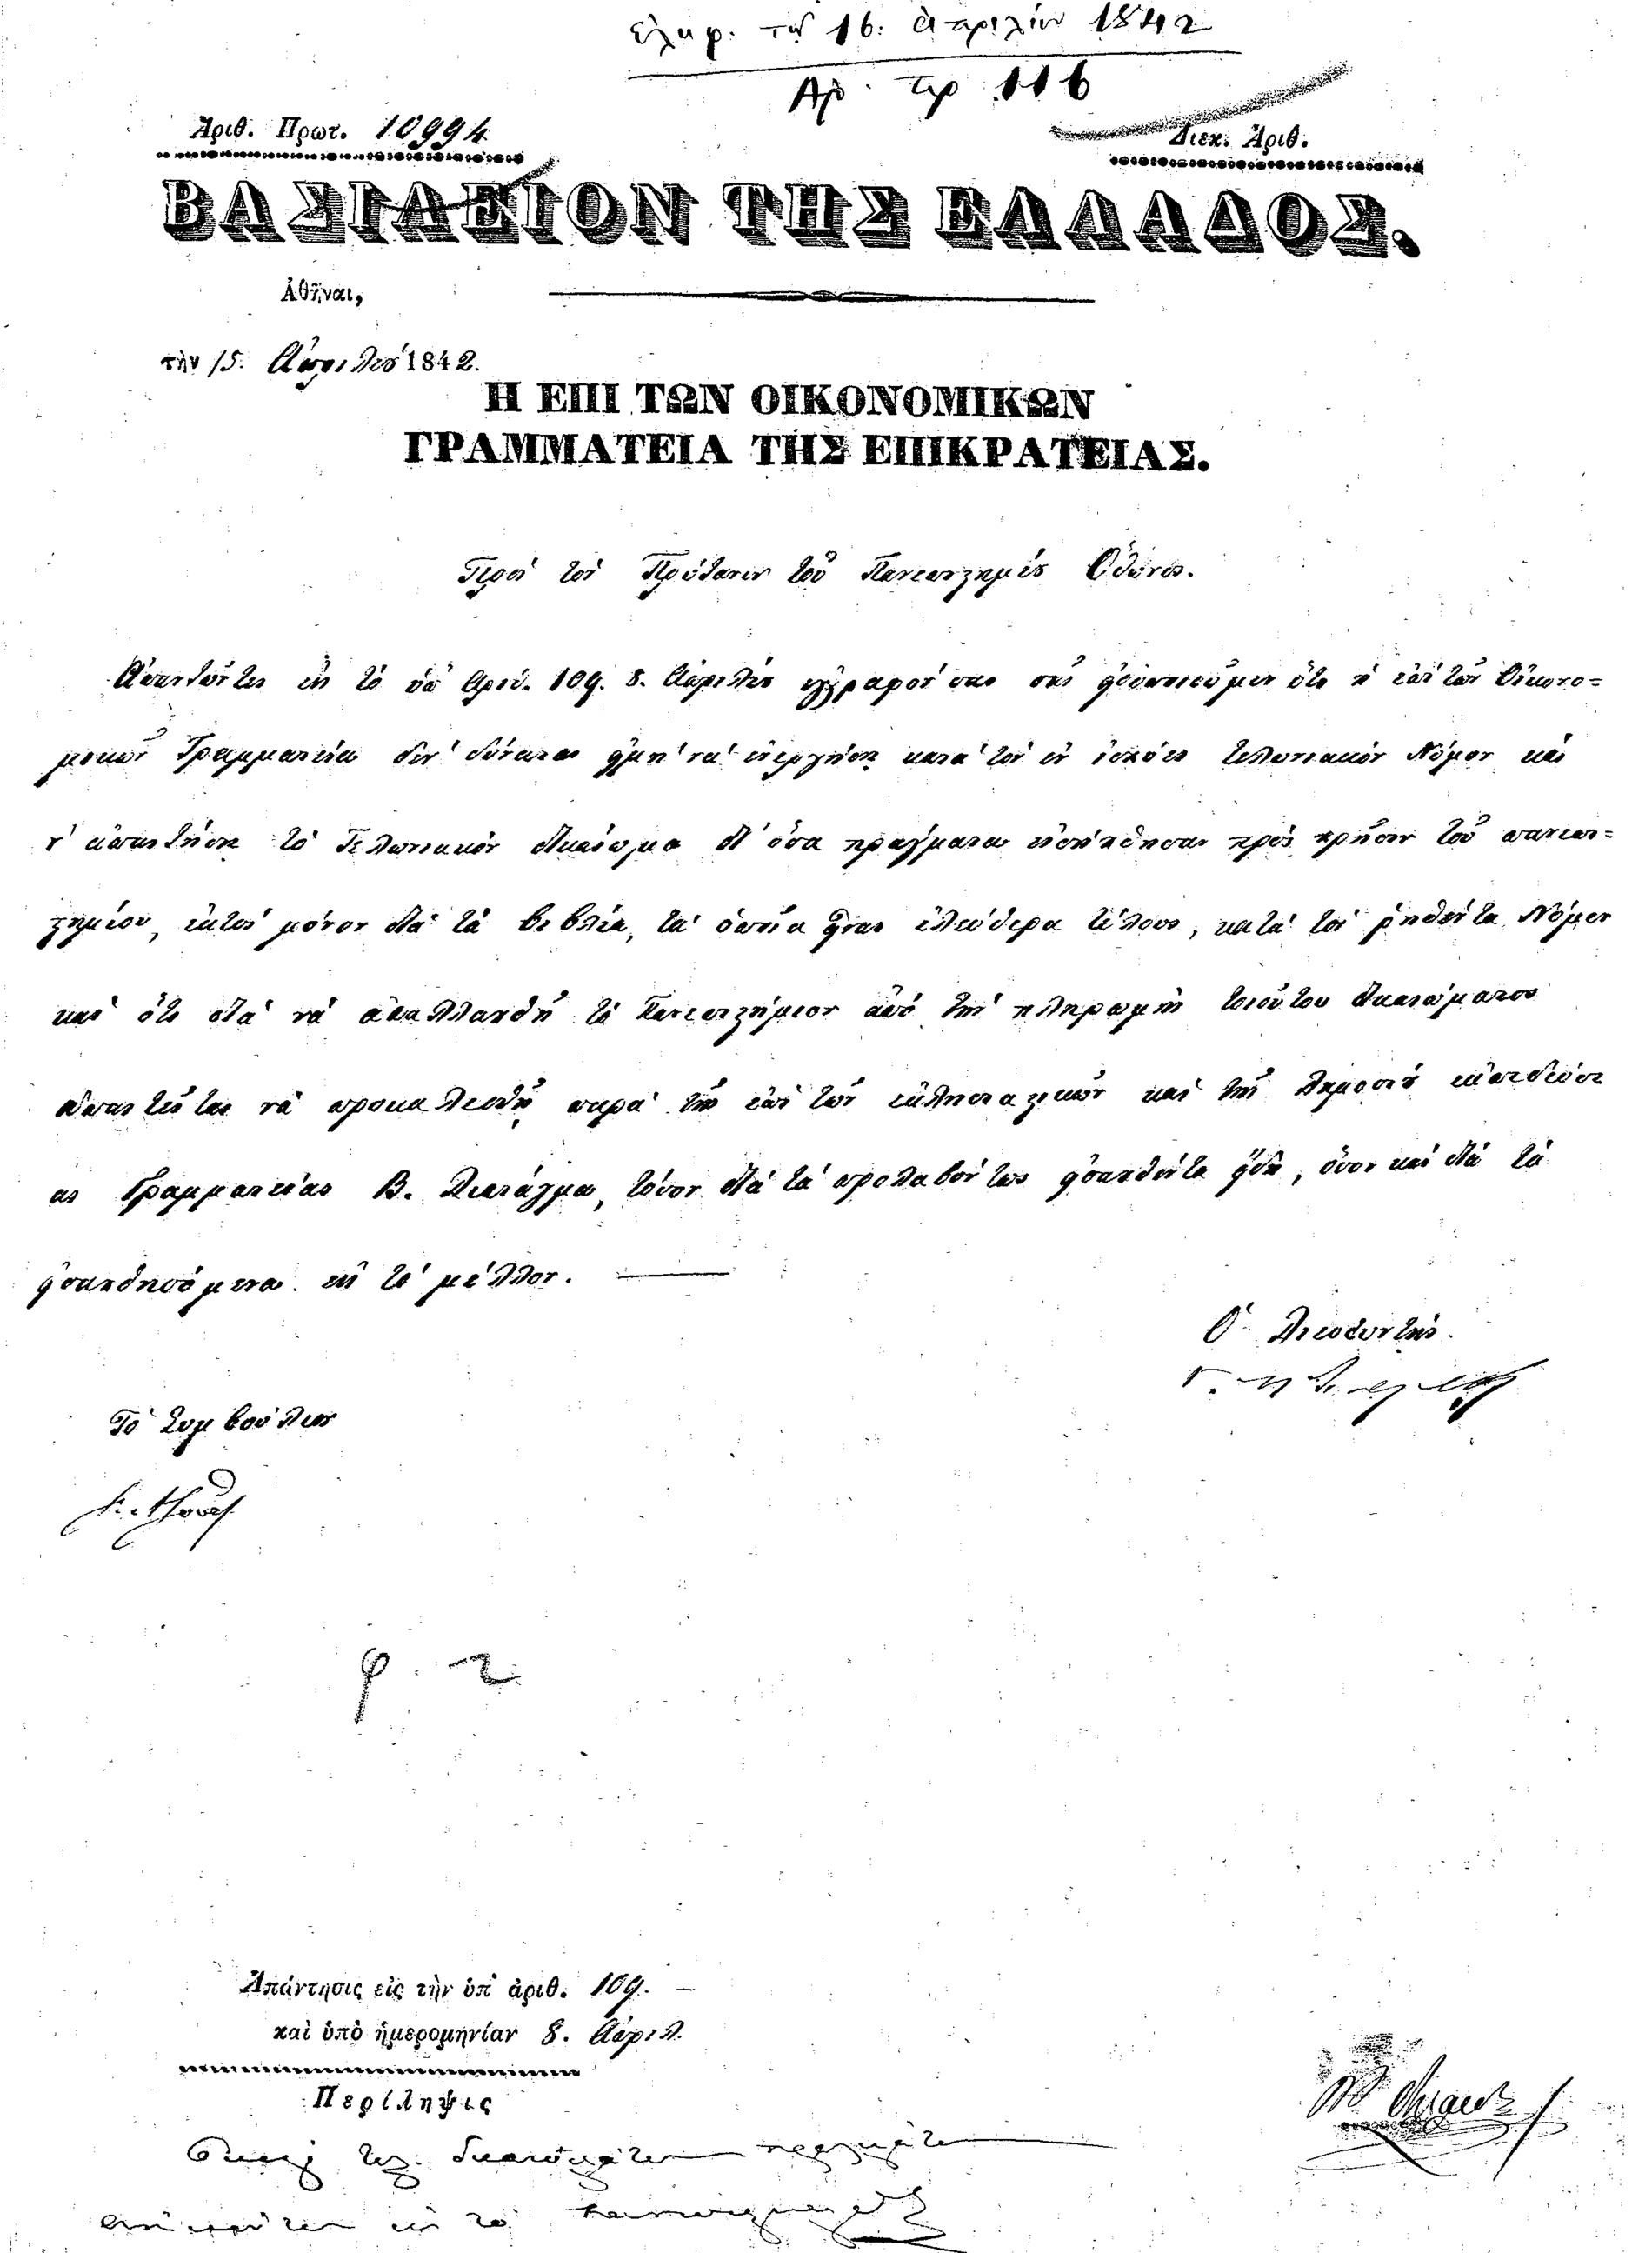 Ἐλήφ. τῇ 16. ἀπριλίου 1842
Ἀρ. πρ 116
Ἀριθ. Πρωτ. 10994
Διεκ. Ἀριθ.
ΒΑΣΙΛΕΙΟΝ ΤΗΣ ΕΛΛΑΔΟΣ.
Ἀθῆναι,
τὴν 15. Ἀπριλίου 1842.
Η ΕΠΙ ΤΩΝ ΟΙΚΟΝΟΜΙΚΩΝ
ΓΡΑΜΜΑΤΕΙΑ ΤΗΣ ΕΠΙΚΡΑΤΕΙΑΣ.
Πρὸς τὸν Πρύτανιν τοῦ Πανεπιστημίου Ὄθωνος.
Ἀπαντῶντες εἰς τὸ ὑπ' Ἀριθ. 109. 8. Ἀπριλίου ἔγγραφόν σας σᾶς εἰδοποιοῦμεν ὅτι ἡ ἐπὶ τῶν Οἰκονο=
μικῶν Γραμματεία δὲν δύναται εἰμὴ νὰ ἐνεργήσῃ κατὰ τὸν ἐν ἰσχύει τελωνιακὸν Νόμον καὶ
ν' ἀπαιτήσῃ τὸ Τελωνιακὸν δικαίωμα δι' ὅσα πράγματα εἰσήχθησαν πρὸς χρῆσιν τοῦ πανεπι=
στημίου, ἐκτὸς μόνον διὰ τὰ βιβλία, τὰ ὁποῖα εἶναι ἐλεύθερα τέλους, κατὰ τὸν ῥηθέντα Νόμον
καὶ ὅτι διὰ νὰ ἀπαλλαχθῇ τὸ Πανεπιστήμιον ἀπὸ τὴν πληρωμὴν τοιούτου δικαιώματος
ἀπαιτεῖται νὰ προκαλεσθῇ παρὰ τῆς ἐπὶ τῶν ἐκκλησιαστικῶν καὶ τῆς δημοσίου ἐκπαιδεύσε
ως Γραμματείας Β. Διατάγμα, τόσον διὰ τὰ προλαβόντως εἰσαχθέντα ἤδη, ὅσον καὶ διὰ τὰ
εἰσαχθησόμενα εἰς τὸ μέλλον.
Ὁ Διευθυντής.
Τὸ Συμβούλιον
φ. 2
Ἀπάντησις εἰς τὴν ὑπ' ἀριθ. 109.
καὶ ὑπὸ ἡμερομηνίαν 8. Ἀπριλ.
Περίληψις
τελ. δικαιωμάτων πραγμάτων
εἰς τὸ Πανεπιστήμιον